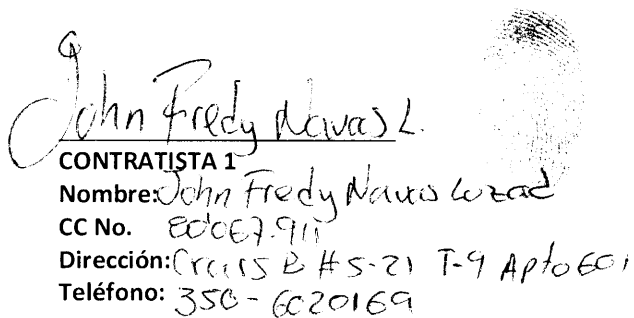 John Fredy Navas L.
CONTRATISTA 1
Nombre: John Fredy Navas Lozad
CC No. 80067.911
Dirección: # 5-21 T-9 Apto 601
Teléfono: 350-6020169